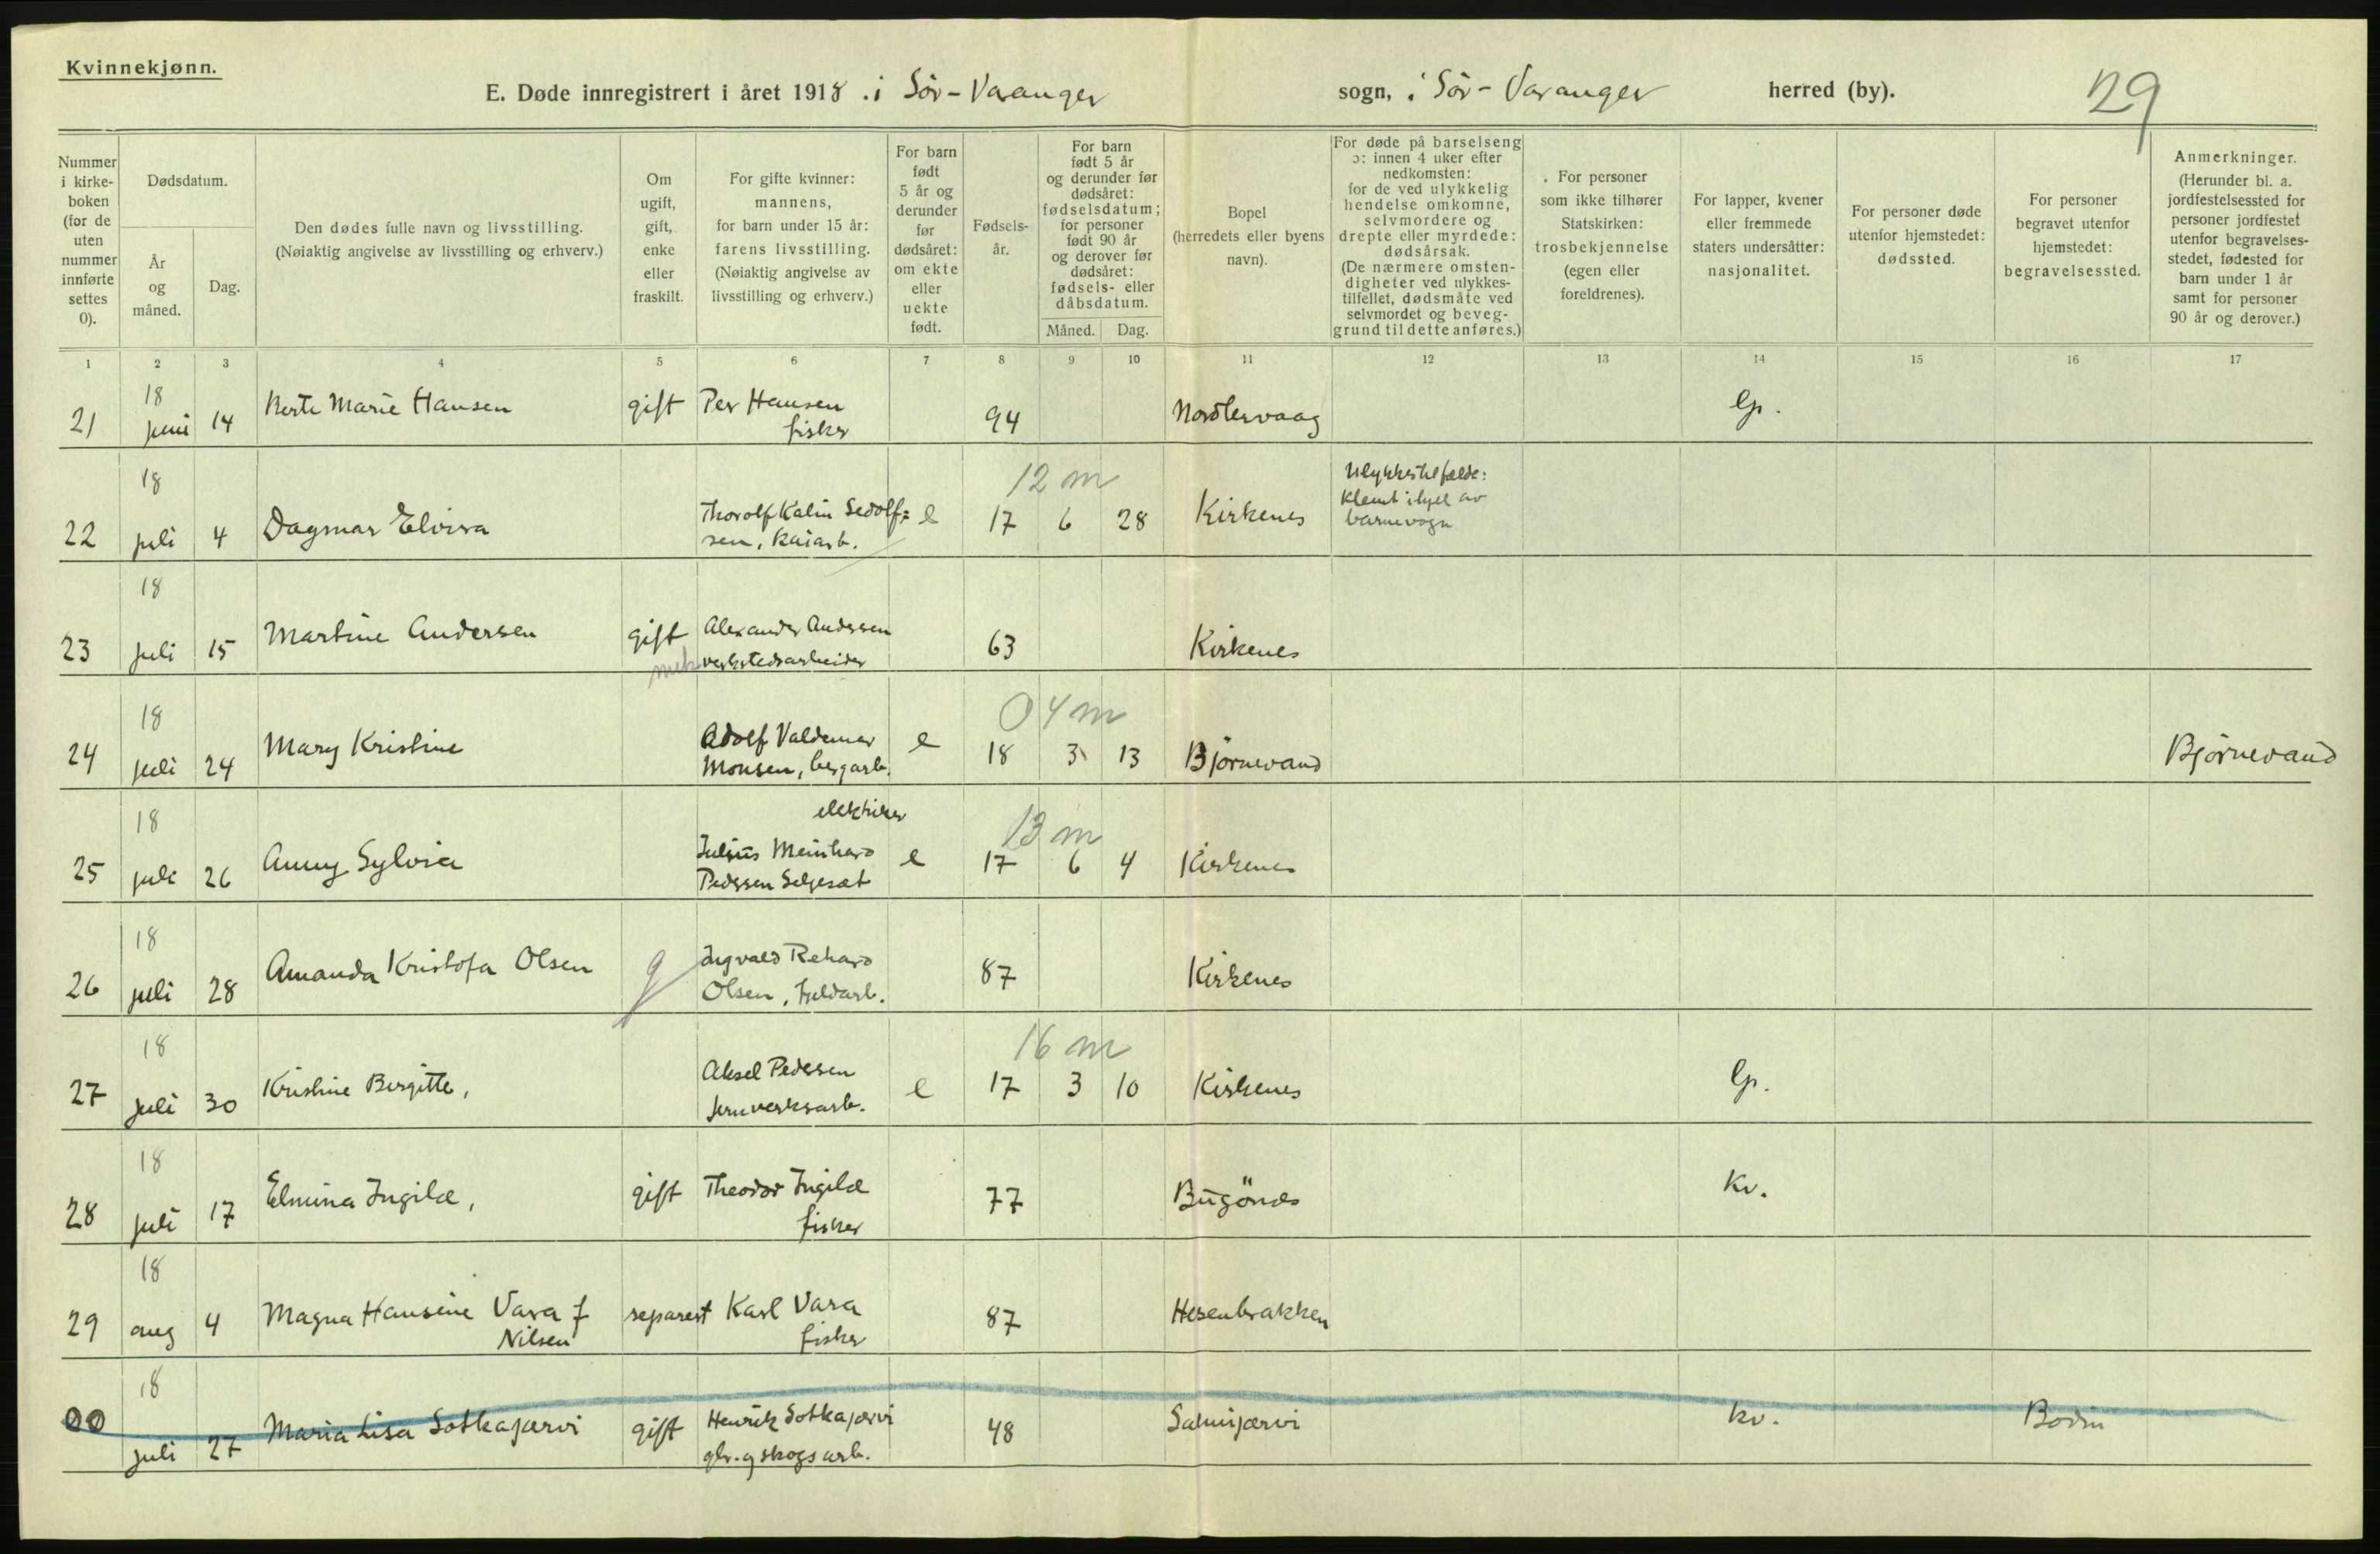 Kvinnekjønn.
E. Døde innregistrert i året 1918 . i Sör-Varanger sogn, i Sör-Varanger herred (by). 29
Nummer i kirke-boken (for de uten nummer innførte settes 0).
Dødsdatum.
År og måned.
Dag.
Den dødes fulle navn og livsstilling.
(Nøiaktig angivelse av livsstilling og erhverv.)
Om ugift, gift, enke eller fraskilt.
For gifte kvinner: mannens, for barn under 15 år: farens livsstilling. (Nøiaktig angivelse av livsstilling og erhverv.)
For barn født 5 år og derunder før dødsåret: om ekte eller uekte født.
Fødsels-år.
For barn født 5 år og derunder før dødsåret: fødselsdatum; for personer født 90 år og derover før dødsåret: fødsels- eller dåbsdatum.
Måned. Dag.
Bopel (herredets eller byens navn).
For døde på barselseng ɔ: innen 4 uker efter nedkomsten: for de ved ulykkelig hendelse omkomne, selvmordere og drepte eller myrdede: dødsårsak. (De nærmere omsten-digheter ved ulykkes-tilfellet, dødsmåte ved selvmordet og beveg-grund til dette anføres.)
. For personer som ikke tilhører Statskirken: trosbekjennelse (egen eller foreldrenes).
For lapper, kvener eller fremmede staters undersåtter: nasjonalitet.
For personer døde utenfor hjemstedet: dødssted.
For personer begravet utenfor hjemstedet: begravelsessted.
Anmerkninger. (Herunder bl. a. jordfestelsessted for personer jordfestet utenfor begravelses-stedet, fødested for barn under 1 år samt for personer 90 år og derover.)
1 2 3 4 5 6 7 8 9 10 11 12 13 14 15 16 17
18
21 juni 14 Berte Marie Hansen gift Per Hansen fisker 94 Nordlervaag lp.
18 12 m
22 juli 4 Dagmar Elvira Thorolf Kalin Sedolf= sen, kaiarb. e 17 6 28 Kirkenes Ulykkestilfælde: klemt ihjel av barnevogn
18
23 juli 15 Martine Andersen gift Alexander Andersen mek verkstedsarbeider 63 Kirkenes
18 04 m
24 juli 24 Mary Kristine Adolf Valdemar Monsen, bergarb. e 18 3 13 Björnevand Björnevand
18 elektriker 13 m
25 juli 26 Anny Sylvia Julius Meinhard Pedersen Seljesæt e 17 6 4 Kirkenes
18
26 juli 28 Amanda Kristofa Olsen g Ingvald Rehard Olsen, 87 Kirkenes
18 16 m
27 juli 30 Kristine Bergitte, Aksel Pedersen jernverksarb. e 17 3 10 Kirkenes lp.
18
28 juli 17 Elmina Ingilæ, gift Theodor Ingilæ fisker 77 Bugönes kv.
18
29 aug 4 Magna Hansine Vara f Nilsen separert Karl Vara fisker 87 Hesenbrakken
18
00 juli 27 Maria Lisa Sotkajærvi gift Henrik Sotkajærvi gbr. g skogsarb. 48 Salmijærvi kv. Bodin